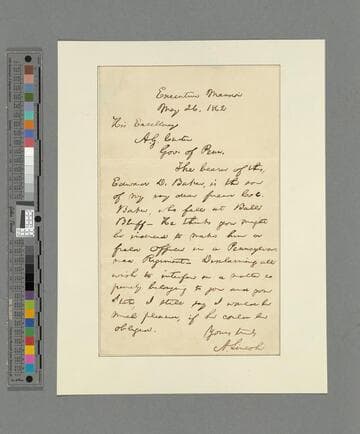 Executive Mansion
May 26, 1862
His Excellency
A. G. Curtin
Gov. of Penn.
The bearer of this,
Edward D. Baker, is the son
of my very dear friend Col.
Baker, who fell at Ball's
Bluff— He thinks you might
be induced to make him a
field officer in a Pennsylvania
new Regiment. Disclaiming all
wish to interfere in a matter so
purely belonging to you and your
State I still say I would be
much pleased, if he could be
obliged.
Yours truly
A. Lincoln